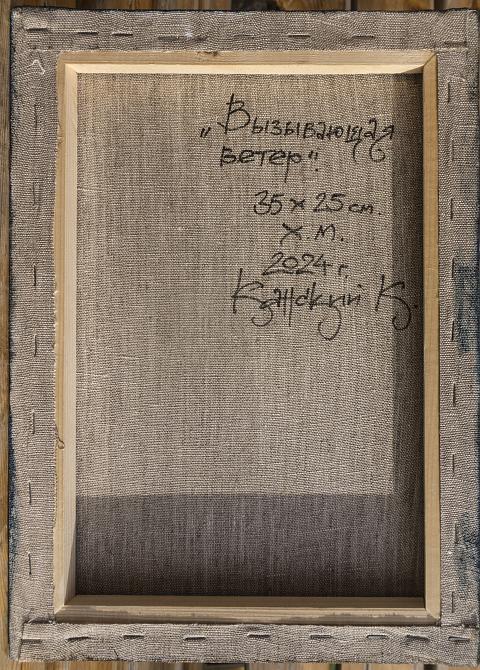 „Вызывающая
ветер"
35 x 25 см.
х.м.
2024 г.
Канский К.